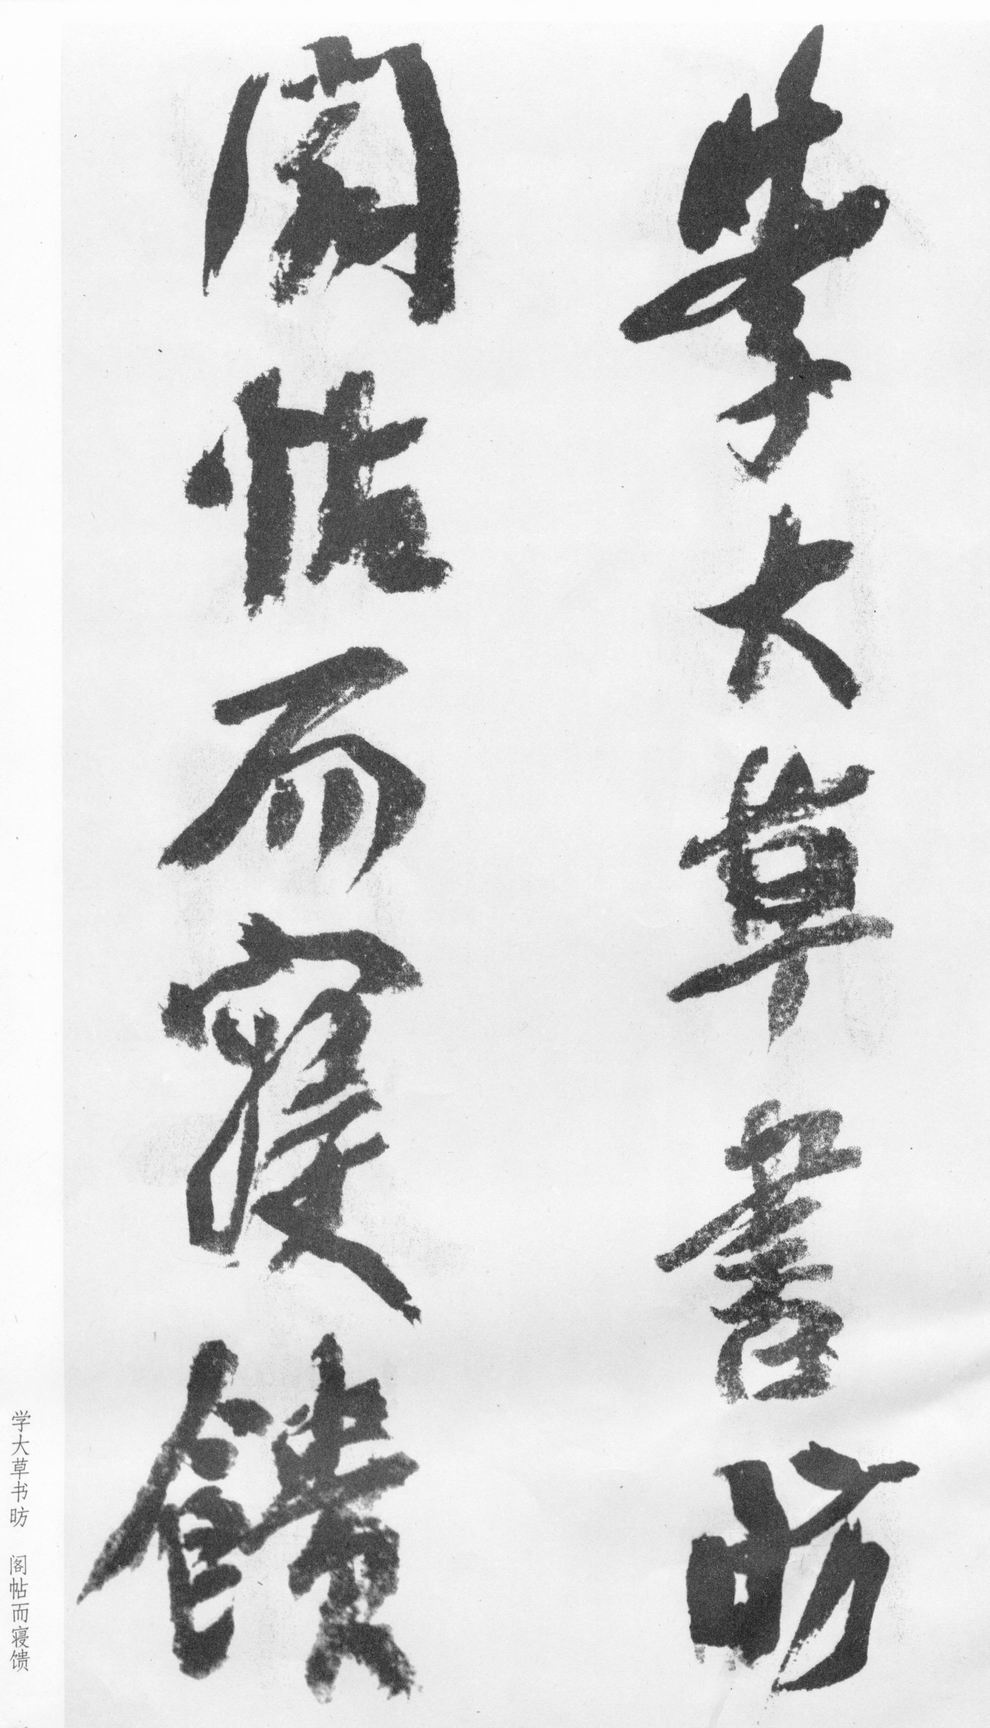 學大草書昉
閣帖而寢饋
学大草书昉 阁帖而寝馈